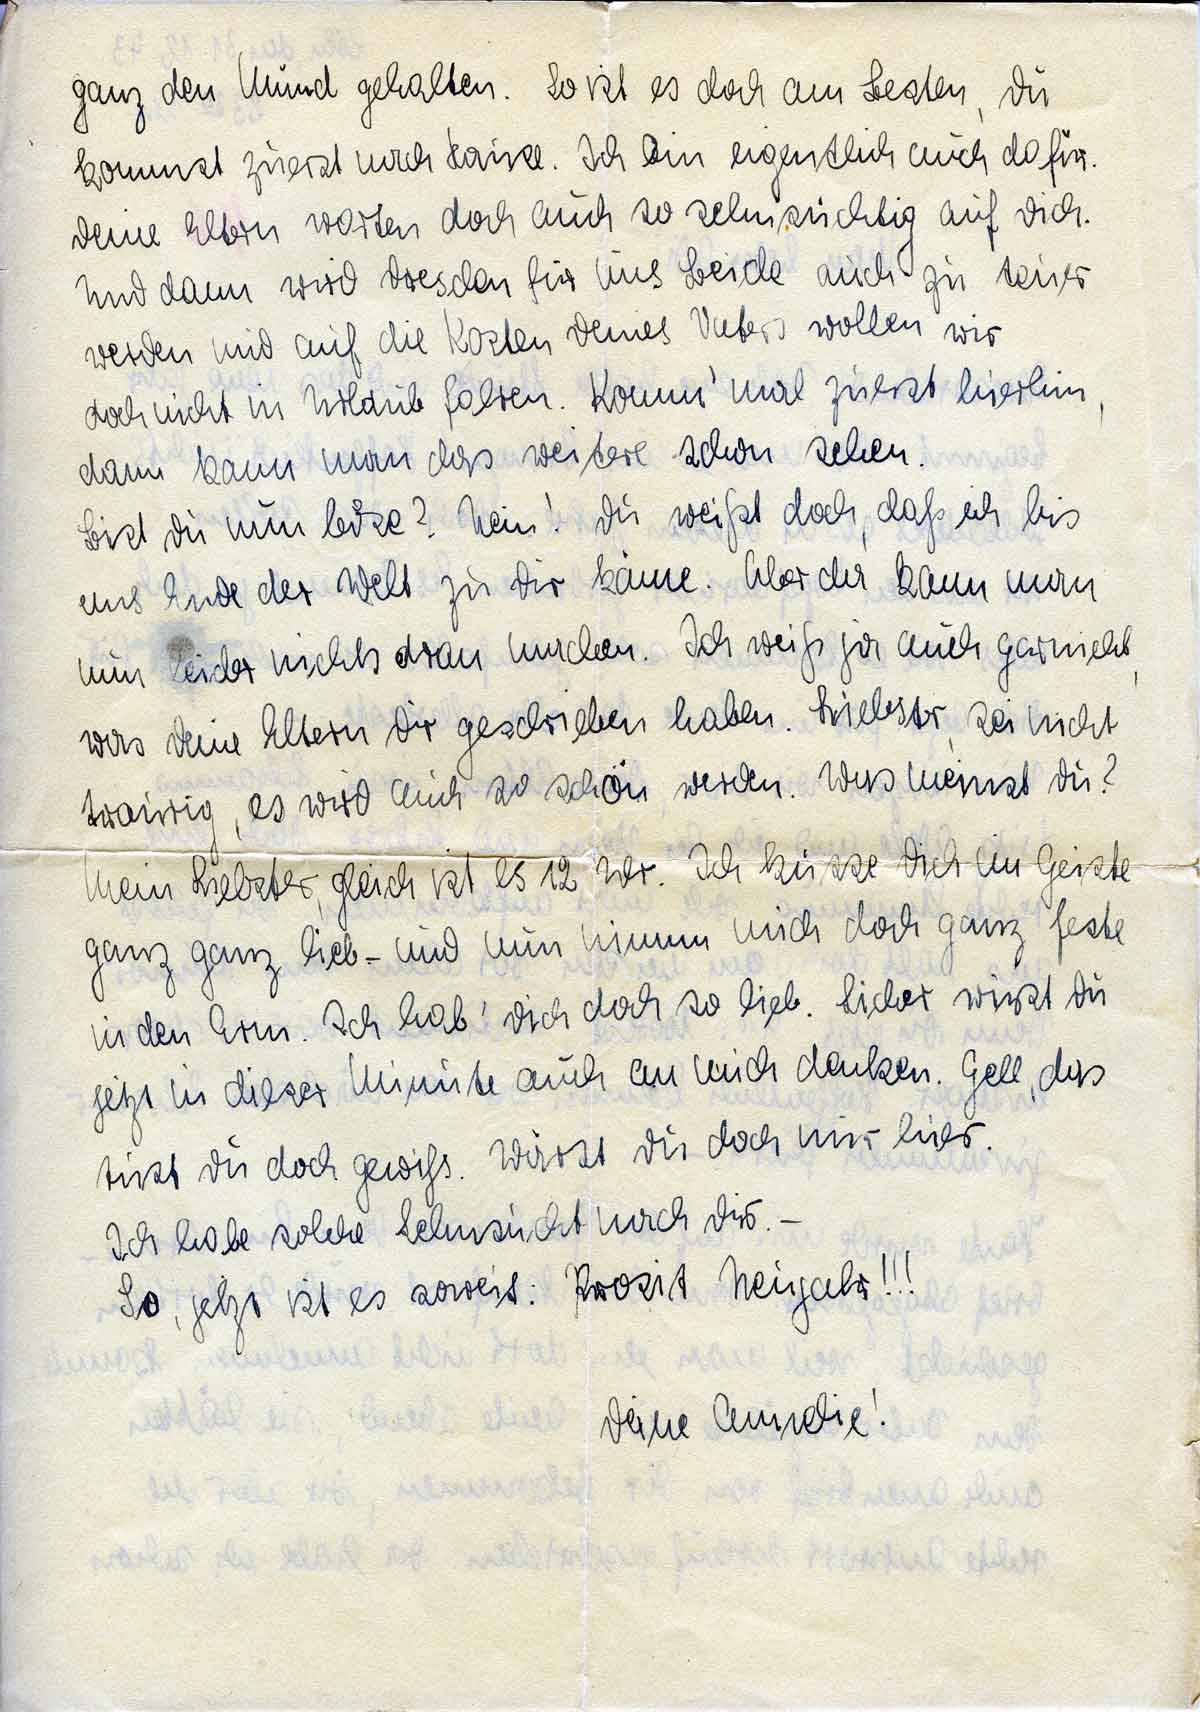 ganz den Mund gehalten. So ist es doch am Besten, Du
kommst zuerst nach Hause. Ich bin eigentlich auch dafür.
Deine Eltern warten doch auch so sehnsüchtig auf Dich.
Und dann wird Dresden für uns beide auch zu teuer
werden und auf die Kosten Deines Vaters wollen wir
doch nicht in Urlaub fahren. Komm' mal zuerst hierhin,
dann kann man das weitere schon sehen.
Bist Du nun böse? Nein! Du weißt doch, daß ich bis
ans Ende der Welt zu Dir käme. Aber da kann man
nun leider nichts dran machen. Ich weiß ja auch garnicht,
was Deine Eltern Dir geschrieben haben. Liebster, sei nicht
traurig, es wird auch so schön werden. Was meinst Du?
Mein Liebster, gleich ist es 12 Uhr. Ich küsse Dich im Geiste
ganz ganz lieb – und nun nimm mich doch ganz feste
in den Arm. Ich hab' Dich doch so lieb. Sicher wirst Du
jetzt in dieser Minute auch an mich denken. Gell, das
tust Du doch gewiß. Wärst Du doch nur hier.
Ich habe solche Sehnsucht nach Dir. –
So, jetzt ist es soweit: Prosit Neujahr!!!
Deine Annelie!